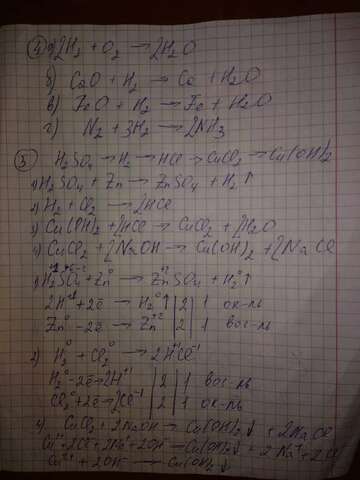 ④ а) 2H₂ + O₂ → 2H₂O
б) CoO + H₂ → Co + H₂O
в) FeO + H₂ → Fe + H₂O
г) N₂ + 3H₂ → 2NH₃
⑤ H₂SO₄ → H₂ → HCl → CuCl₂ → Cu(OH)₂
1) H₂SO₄ + Zn → ZnSO₄ + H₂↑
2) H₂ + Cl₂ → 2HCl
3) Cu(OH)₂ + 2HCl → CuCl₂ + 2H₂O
4) CuCl₂ + 2NaOH → Cu(OH)₂ + 2NaCl
1) H₂SO₄ + Zn⁰ → Zn⁺²SO₄ + H₂⁰↑
2H⁺¹ + 2ē → H₂⁰↑ | 2 | 1 ок-ль
Zn⁰ - 2ē → Zn⁺² | 2 | 1 вос-ль
2) H₂⁰ + Cl₂⁰ → 2H⁺¹Cl⁻¹
H₂⁰ - 2ē → 2H⁺¹ | 2 | 1 вос-ль
Cl₂⁰ + 2ē → 2Cl⁻¹ | 2 | 1 ок-ль
4) CuCl₂ + 2NaOH → Cu(OH)₂↓ + 2NaCl
Cu²⁺ + 2Cl⁻ + 2Na⁺ + 2OH⁻ → Cu(OH)₂↓ + 2Na⁺ + 2Cl⁻
Cu²⁺ + 2OH⁻ → Cu(OH)₂↓